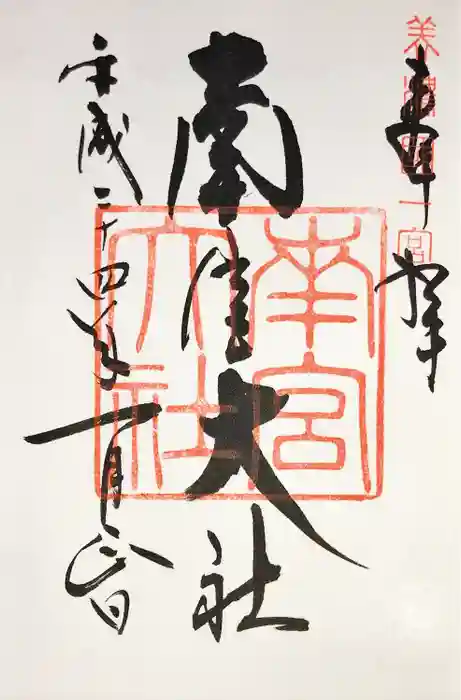 美濃國一宮
奉拝
南宮大社
南宮大社
平成二十四年一月日